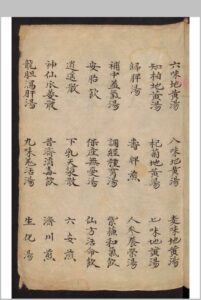 六味地黄湯 八味地黄湯 麦味地黄湯
知柏地黄湯 杞菊地黄湯 七味地黄湯
解肝湯 人参養榮湯
補中益氣湯 調經種育湯 紫蘇和氣飲
安胎飲 保産無憂湯 仙方活命飲
逍遥散 下乳天漿散 六安煎
神仙 散 普濟消毒飲 濟川煎
龍胆瀉肝湯 九味羌活湯 生化湯